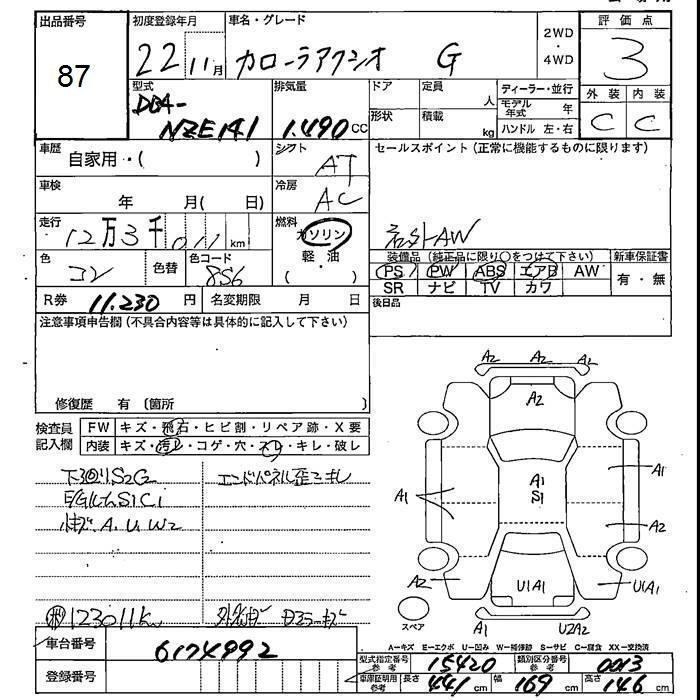 出品番号 初度登録年月 車名・グレード 2WD・4WD 評価点
87 22 11月 カローラアクシオ G 3
型式 排気量 ドア 定員 人 ディーラー・並行 外装 内装
DBA- モデル年式 年
NZE141 1.490 CC 形状 積載 kg ハンドル 左・右 C C
車歴 自家用・( ) シフト AT セールスポイント(正常に機能するものに限ります)
車検 年 月( 日) 冷房 AC
走行 12万3千011km 燃料 ガソリン 軽・油 ( ) 社外AW
色 コン 色替 色コード 8S6 装備品(純正品に限り○をつけて下さい) 新車保証書
PS PW ABS エアB AW 有・無
SR ナビ TV カワ
R券 11.230 円 名変期限 月 日 後日品
注意事項申告欄(不具合内容等は具体的に記入して下さい)
修復歴 有 〔箇所 〕
検査員記入欄 FW キズ・飛石・ヒビ割・リペア跡・X要
内装 キズ・汚レ・コゲ・穴・スレ・キレ・破レ
下廻りS2C2 エンドパネル歪ミキレ
E/GルームS1C1
A、U、W2
123011km
A2 A2 A2
A2
A1 A1 S1 A1
A2
A2 U1A1 U1A1
スペア A1 U2A2
A—キズ E—エクボ U—凹み W—補修跡 S—サビ C—腐食 XX—交換済
車台番号 6174992 型式指定番号 参考 15420 類別区分番号 参考 0013
登録番号 車庫証明用 参考 長さ 441cm 幅 169cm 高さ 146cm